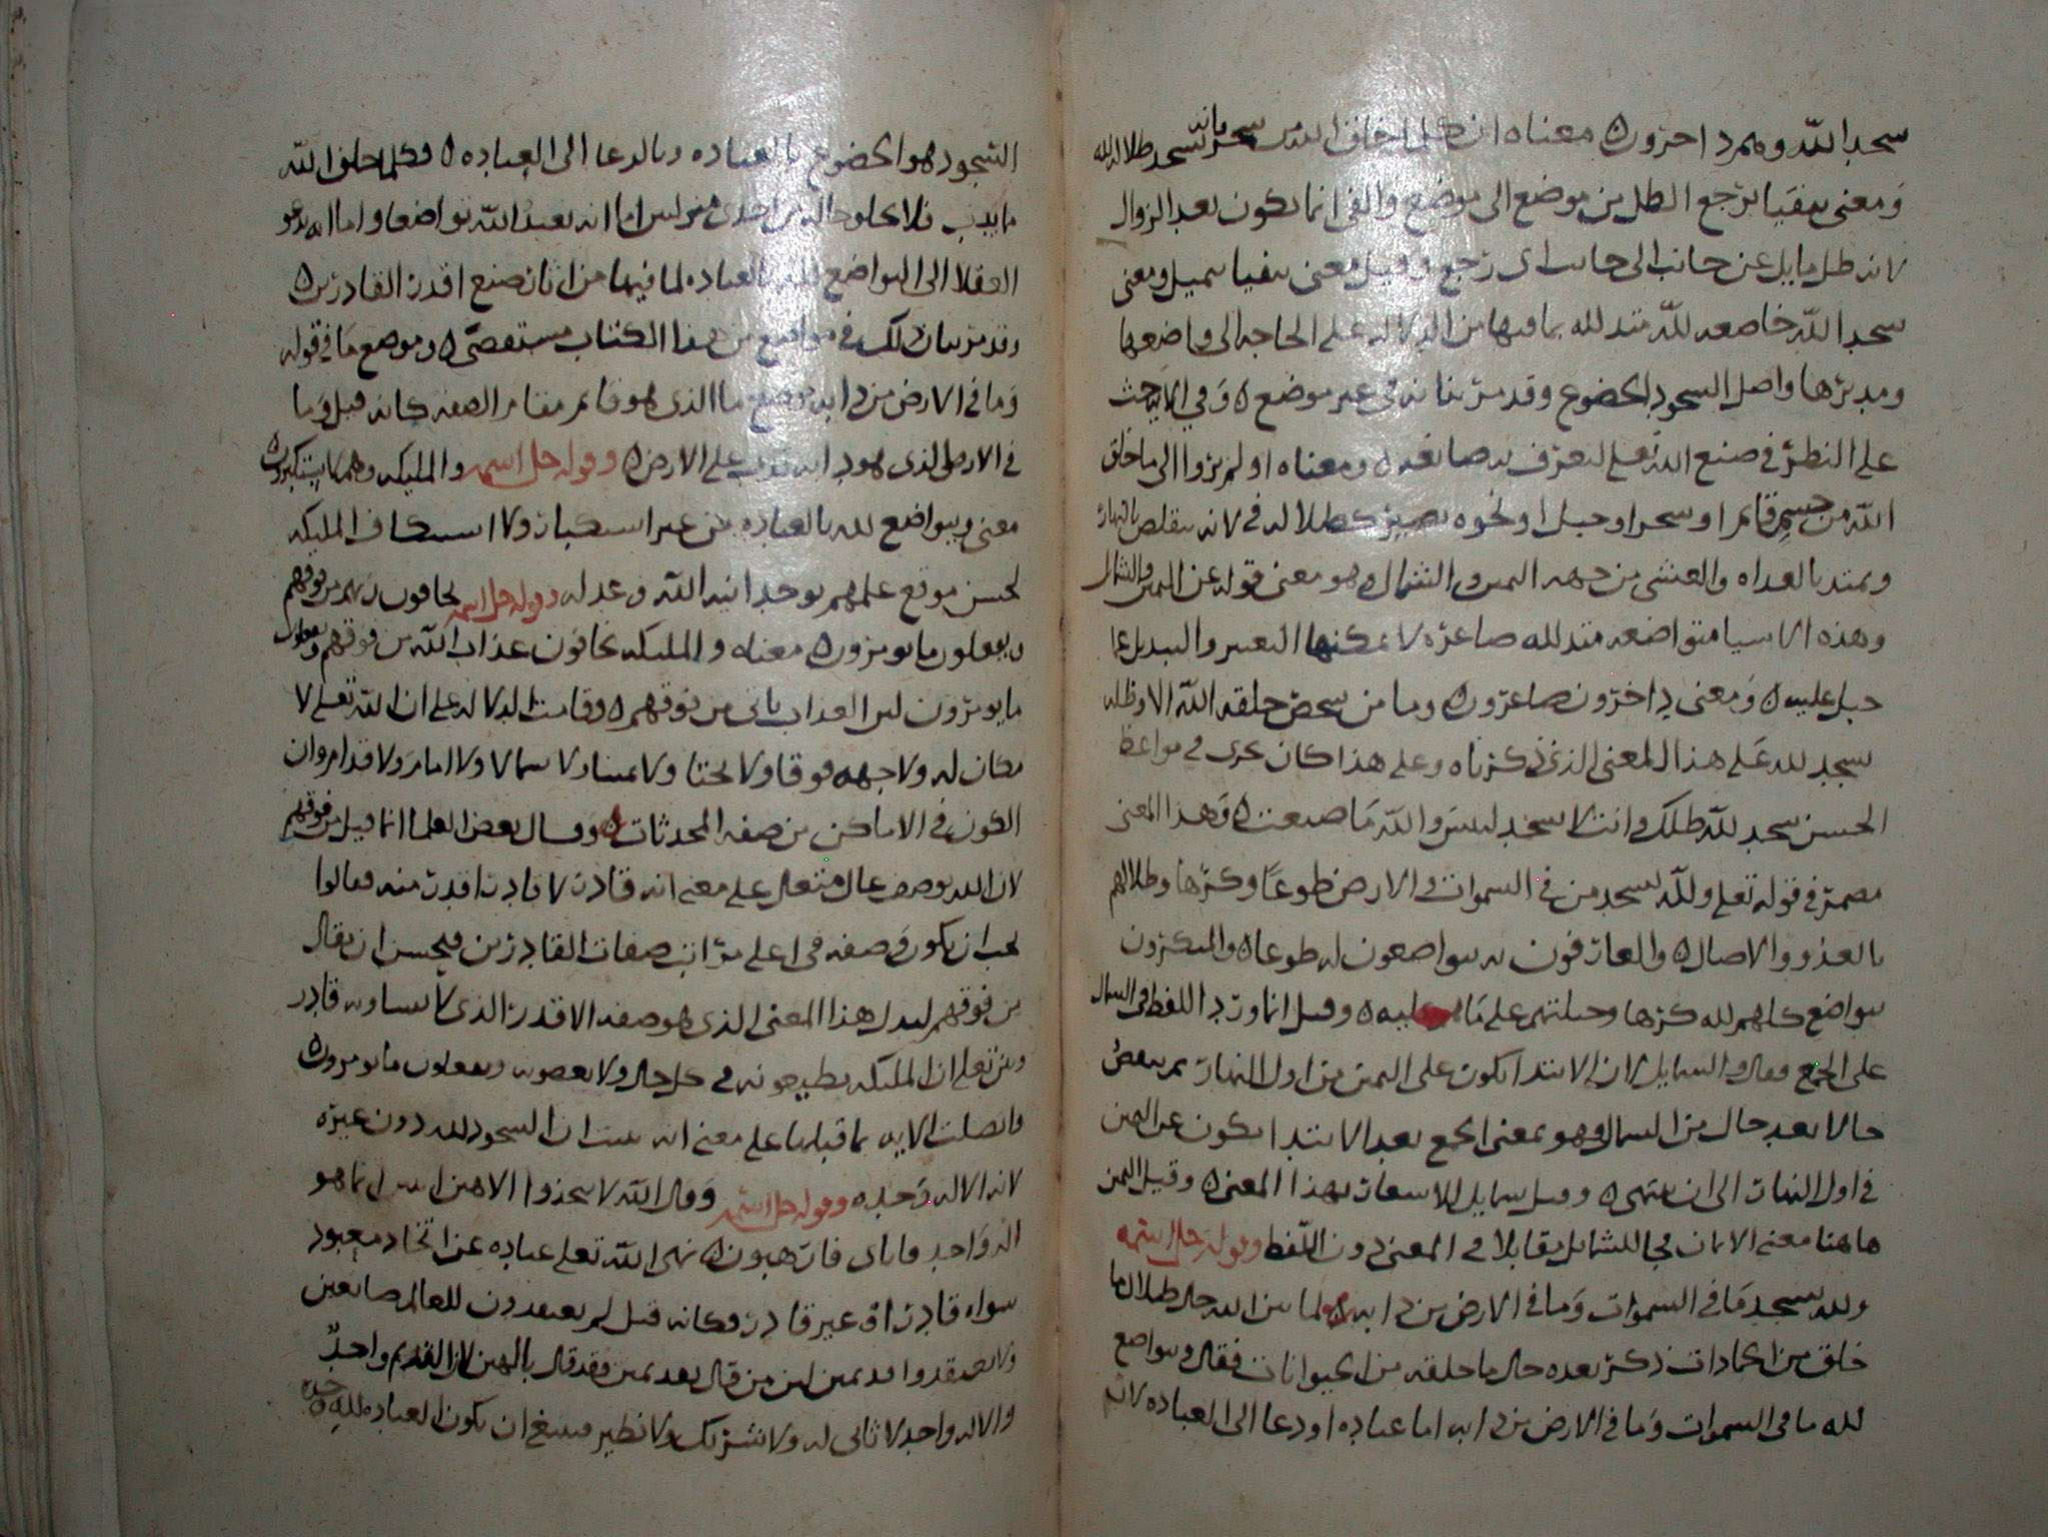 سجدا لله وهم داخرون معناه ان كل ما خلق الله من شجر بانه يسجد ظلاله لله
ومعنى يتفيا يرجع الظل من موضع الى موضع والفى انما يكون بعد الزوال
لانه ظل مايل عن جانب الى جانب اى رجع وقيل معنى يتفيا يميل ومعنى
سجدا لله خاضعه لله متذلله بما فيها من الدلاله على الحاجه الى واضعها
ومدبرها واصل السجود الخضوع وقد مر بيانه فى غير موضع وفى الايه حث
على النظر فى صنع الله تعلى ليعرف به صانعه ومعناه اولم يروا الى ما خلق
الله من جسم قائم او شجر او جبل او نحوه يصير كظلاله فى لانه يتقلص بالنهار
ويمتد بالغداه والعشى من جهه اليمين والشمال هو معنى قوله عن اليمين والشمال
وهذه الاشيا متواضعه متذلله صاغره لا يمكنها التغيير والتبديل عما
جبل عليه ومعنى داخرون صاغرون وما من شخص خلقه الله الا وظله
يسجد لله على هذا المعنى الذى ذكرناه وعلى هذا كان يجرى فى مواعظ
الحسن يسجد لله ظلك وانت لا تسجد لبيس والله ما صنعت وهذا المعنى
مضمر فى قوله تعلى ولله يسجد من فى السموات والارض طوعا وكرها وظلالهم
بالغدو والاصال والعارفون به يتواضعون له طوعا والمنكرون
يتواضع كلهم لله كرها وجبلتهم على ما عليه وقيل انما ورد اللفظ فى الشمال
على الجمع فقال والشمايل لان الابتدا يكون على اليمين من اول النهار ثم ينقص
حالا بعد حال من الشمال فهو بمعنى الجمع بعد الابتدا يكون عن اليمين
فى اول النهار الى ان ينتهى وقيل شمايل للاشعار بهذا المعنى وقيل اليمين
هاهنا معنى الايمان فجا للشمايل مقابلا فى المعنى دون اللفظ وقوله جل اسمه
ولله يسجد ما فى السموات وما فى الارض من دابه لما بين الله حال ظلال ما
خلق من الجمادات ذكر بعده حال ما خلقه من الحيوانات فقال ويتواضع
لله ما فى السموات وما فى الارض من دابه اما عباده او دعا الى العباده لان
السجود هو الخضوع بالعباده وبالدعا الى العباده وكلما خلق الله
ما يدب فلا يخلو حاله من احدى منزلين اما انه يعبد الله تواضعا واما انه يدعو
العقلا الى التواضع لله بالعباده لما فيها من اثار صنع اقدر القادرين
وقد مر بيان ذلك فى مواضع من هذا الكتاب مستقصى وموضع ما فى قوله
وما فى الارض من دابه موضع ما الذى هو قائم مقام الصفه كانه قيل وما
فى الارض الذى هو دابه تدب على الارض وقوله جل اسمه والمليكه وهم لا يستكبرون
معنى ويتواضع لله بالعباده من غير استكبار ولا استنكاف المليكه
لحسن موقع علمهم بوحدانيه الله وعدله وقوله جل اسمه يخافون ربهم من فوقهم
ويفعلون ما يومرون معناه والمليكه يخافون عذاب الله من فوقهم ويفعلون
ما يومرون لان العذاب ياتى من فوقهم وقامت الدلاله على ان الله تعلى لا
مكان له ولا جهه فوقا ولا تحتا ولا يمينا ولا شمالا ولا امام ولا قدام وان
الكون فى الاماكن من صفه المحدثات وقال بعض العلما انما قيل من فوقهم
لان الله يوصف عال متعال على معنى انه قادر لا قادر اقدر منه فقالوا
يجب ان يكون فى صفه فى اعلى مراتب صفات القادرين فيحسن ان يقال
من فوقهم ليدل هذا المعنى الذى هو صفه الاقدر الذى لا يساويه قادر
وبين تعلى ان المليكه يطيعونه فى كل حال ولا يعصونه ويفعلون ما يومرون
واتصلت الايه بما قبلها على معنى انه بينت ان السجود لله دون غيره
لانه الاله وحده وقوله جل اسمه وقال الله لا تتخذوا الاهين اثنين انما هو
اله واحد فاياى فارهبون نهى الله تعلى عباده عن اتخاذ معبود
سواه قادر او غير قادر فكانه قيل لم يعبدون للعالم صانعين
ولا تعتقدوا قديمين اثنين من قال بعد يمين فقد قال بالهين لان القديم واحد
والاله واحد لا ثانى له ولا شريك ولا نظير فينبغى ان يكون العباده لله وحده